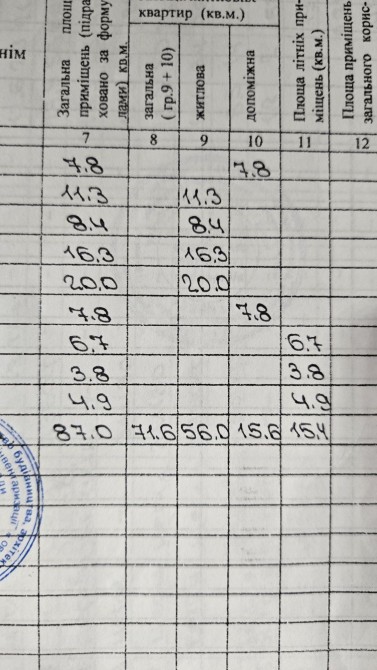 квартир (кв.м.)
нім
Загальна площ
приміщень (підра
ховано за форму
лами) кв.м.
загальна
(гр.9 + 10)
житлова
допоміжна
Площа літніх при-
міщень (кв.м.)
Площа приміщень
загального корис-
7 8 9 10 11 12
7.8 7.8
11.3 11.3
8.4 8.4
16.3 16.3
20.0 20.0
7.8 7.8
6.7 6.7
3.8 3.8
4.9 4.9
87.0 71.6 56.0 15.6 15.4
будівництва, архітек